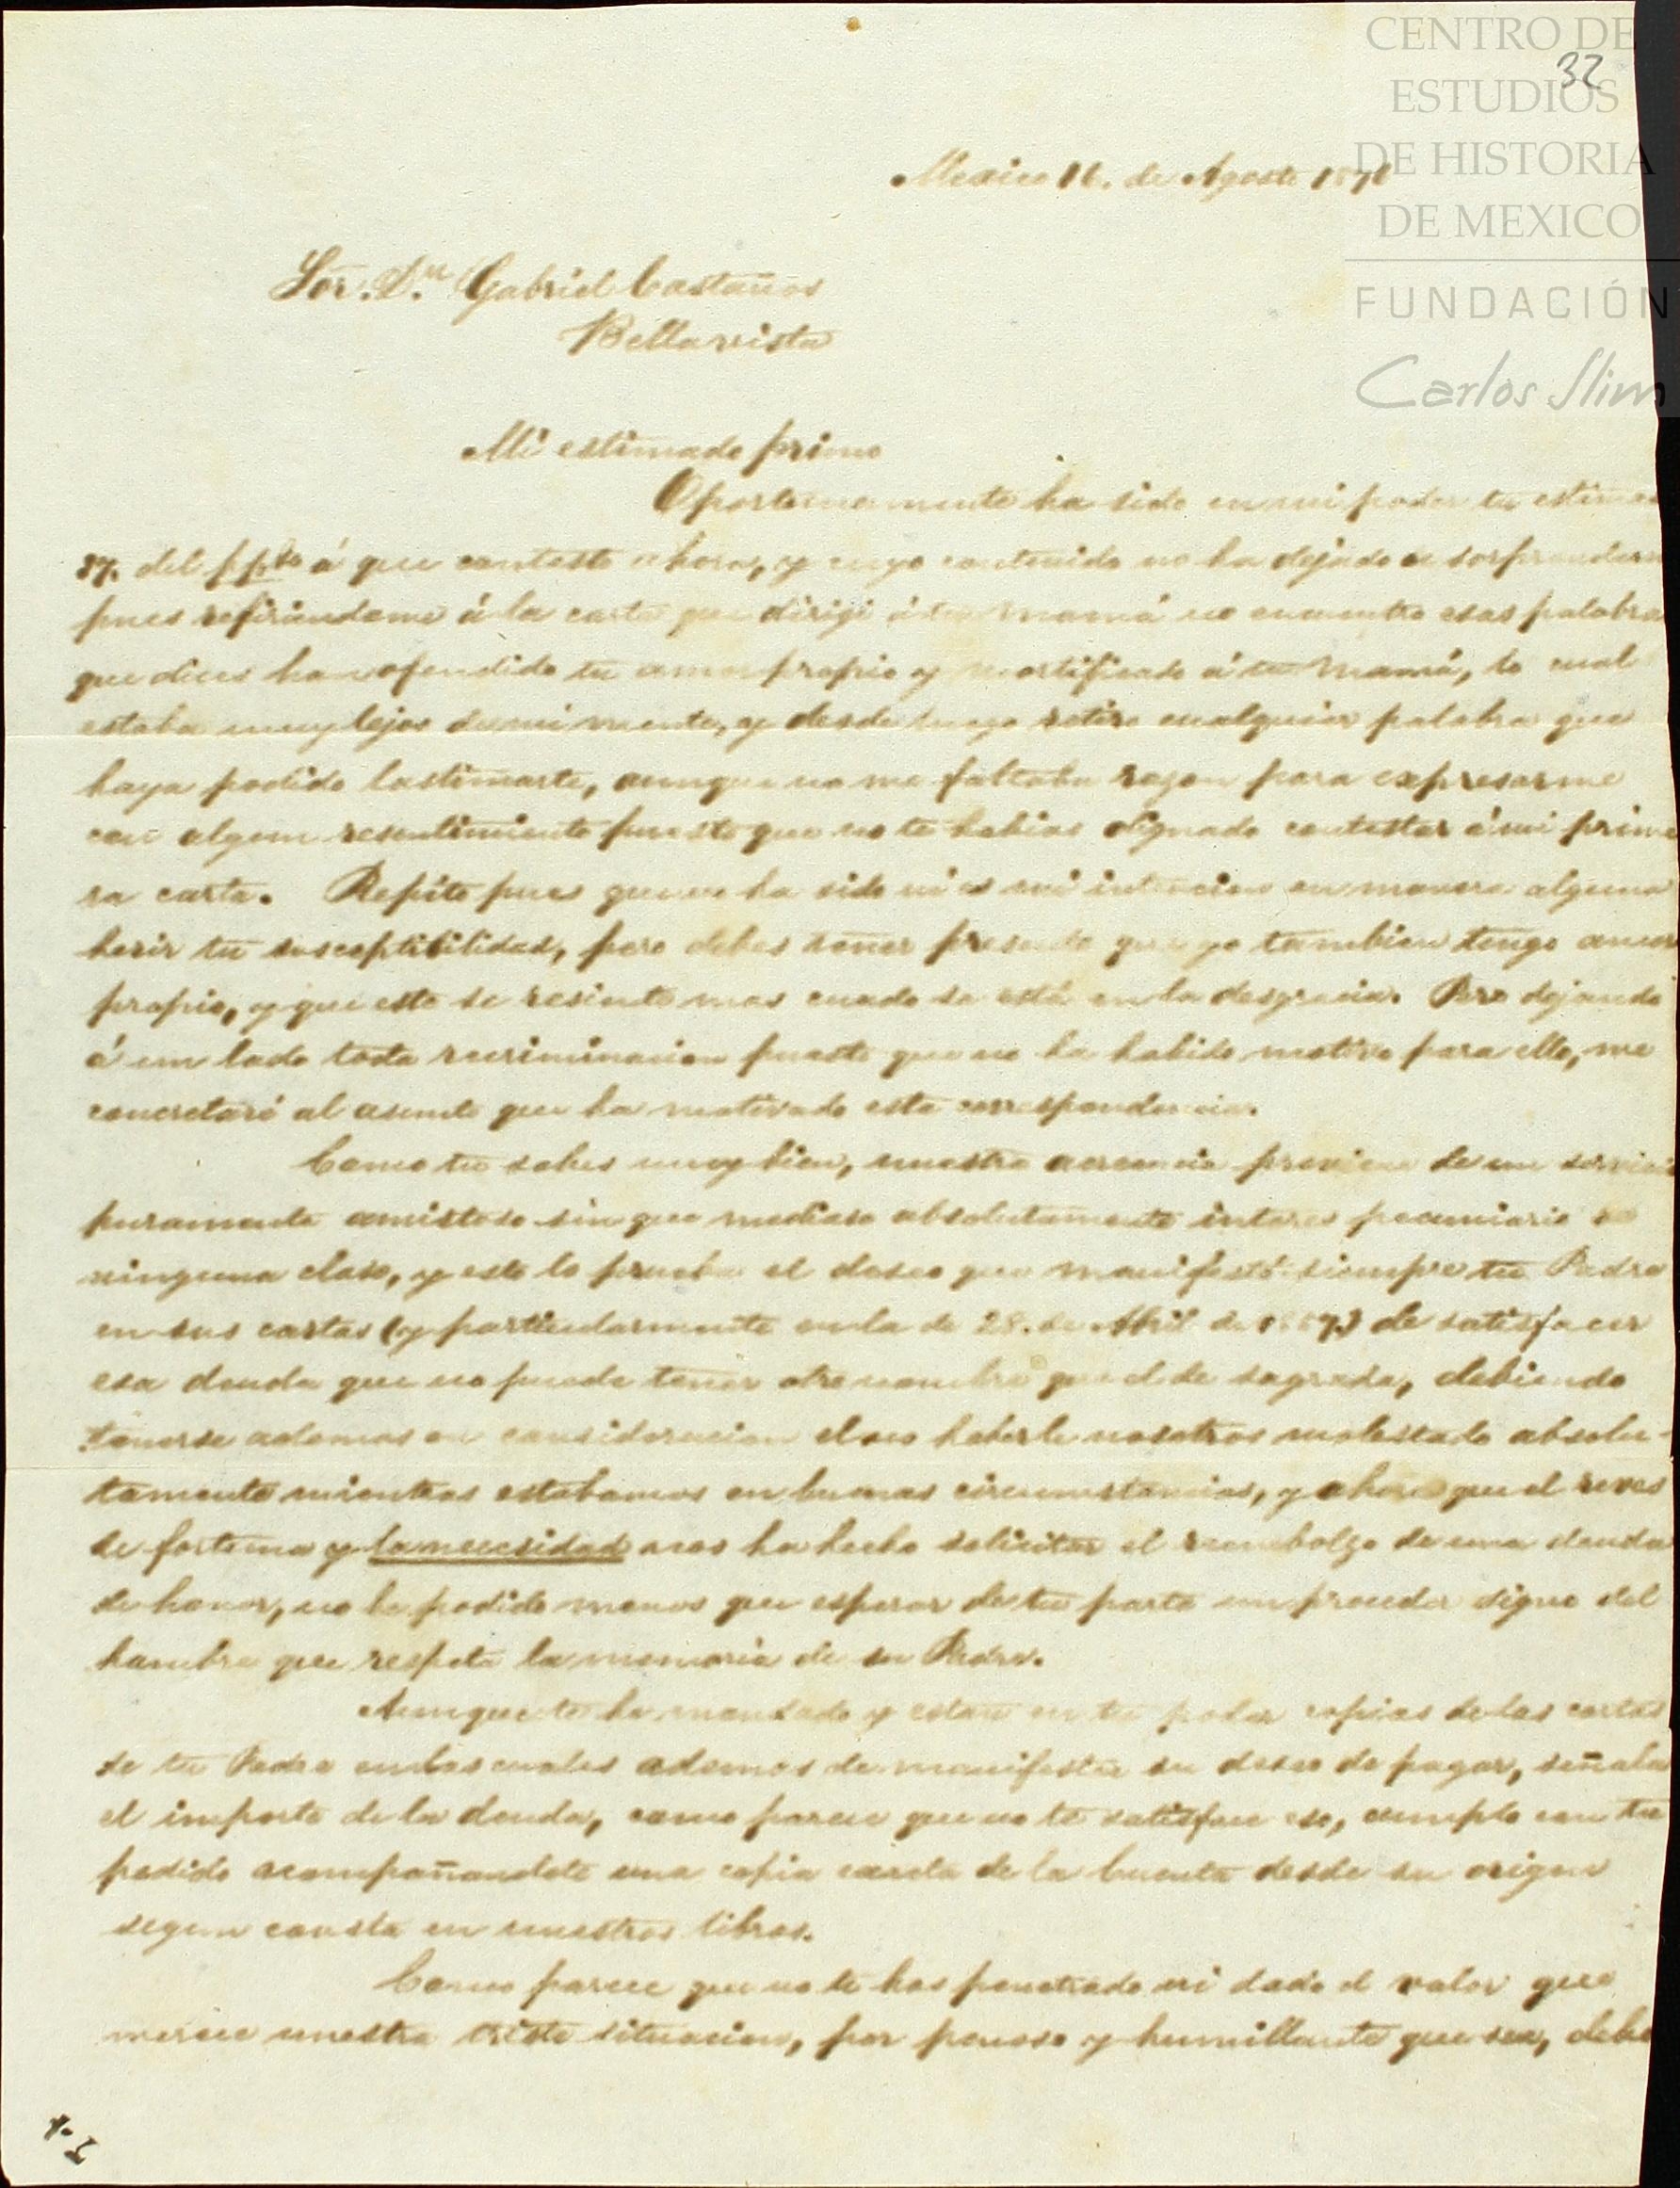 CENTRO DE
ESTUDIOS
DE HISTORIA
DE MEXICO
FUNDACIÓN
Carlos Slim
32
Mexico 16. de Agosto
Sor. Dn Gabriel Castaños
Bellavista
Mi estimado primo
Oportunamente ha sido en mi poder tu estima
del á que contesto ahora, y cuyo contenido no ha dejado de sorprender
pues refiriendome á la carta que dirigi á tu mamá no encuentro esas palabra
que dices han ofendido tu amor propio y mortificado á tu mamá, lo cual
estaba muy lejos de mi mente, y desde luego retiro cualquier palabra que
haya podido lastimarte, aunque no me faltaba razon para expresarme
con algun resentimiento puesto que no te habias dignado contestar á mi prime
ra carta. Repito pues que no ha sido ni es mi intencion en manera alguna
herir tu susceptibilidad, pero debes tener presente que yo tambien tengo amor
propio, y que este se resiente mas cuado se está en la desgracia. Pero dejando
á un lado toda recriminacion puesto que no ha habido motivo para ello, me
concretaré al asunto que ha motivado esta correspondencia.
Como tu sabes muy bien, nuestra acreencia proviene de un servicio
puramente amistoso sin que mediase absolutamente interes pecuniario de
ninguna clase, y esto lo prueba el deseo que manifestó siempre tu Padre
en sus cartas (y particularmente en la de 28. de Abril de ) de satisfacer
esa deuda que no puede tener otro nombre que el de sagrada, debiendo
tenerse ademas en consideracion el no haberle nosotros molestado absolu-
tamente mientras estabamos en buenas circumstancias, y ahora que el reves
de fortuna y la necesidad nos ha hecho solicitar el reembolzo de una deuda
de honor, no he podido menos que esperar de tu parte un proceder digno del
hombre que respeta la memoria de su Padre.
Aunque te he mandado y estan en tu poder copias de las cartas
de tu Padre en las cuales ademas de manifestar su deseo de pagar, señala
el importe de la deuda, como parece que no te satisface eso, cumplo con tu
pedido acompañandote una copia exacta de la Cuenta desde su origen
segun consta en nuestros libros.
Como parece que no te has penetrado ni dado el valor que
merece nuestra triste situacion, por penoso y humillante que sea, debo